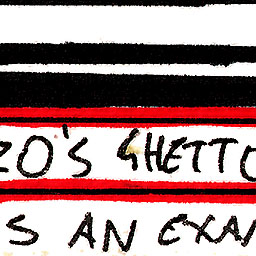 ZO'S GHETTO
S AN EXA